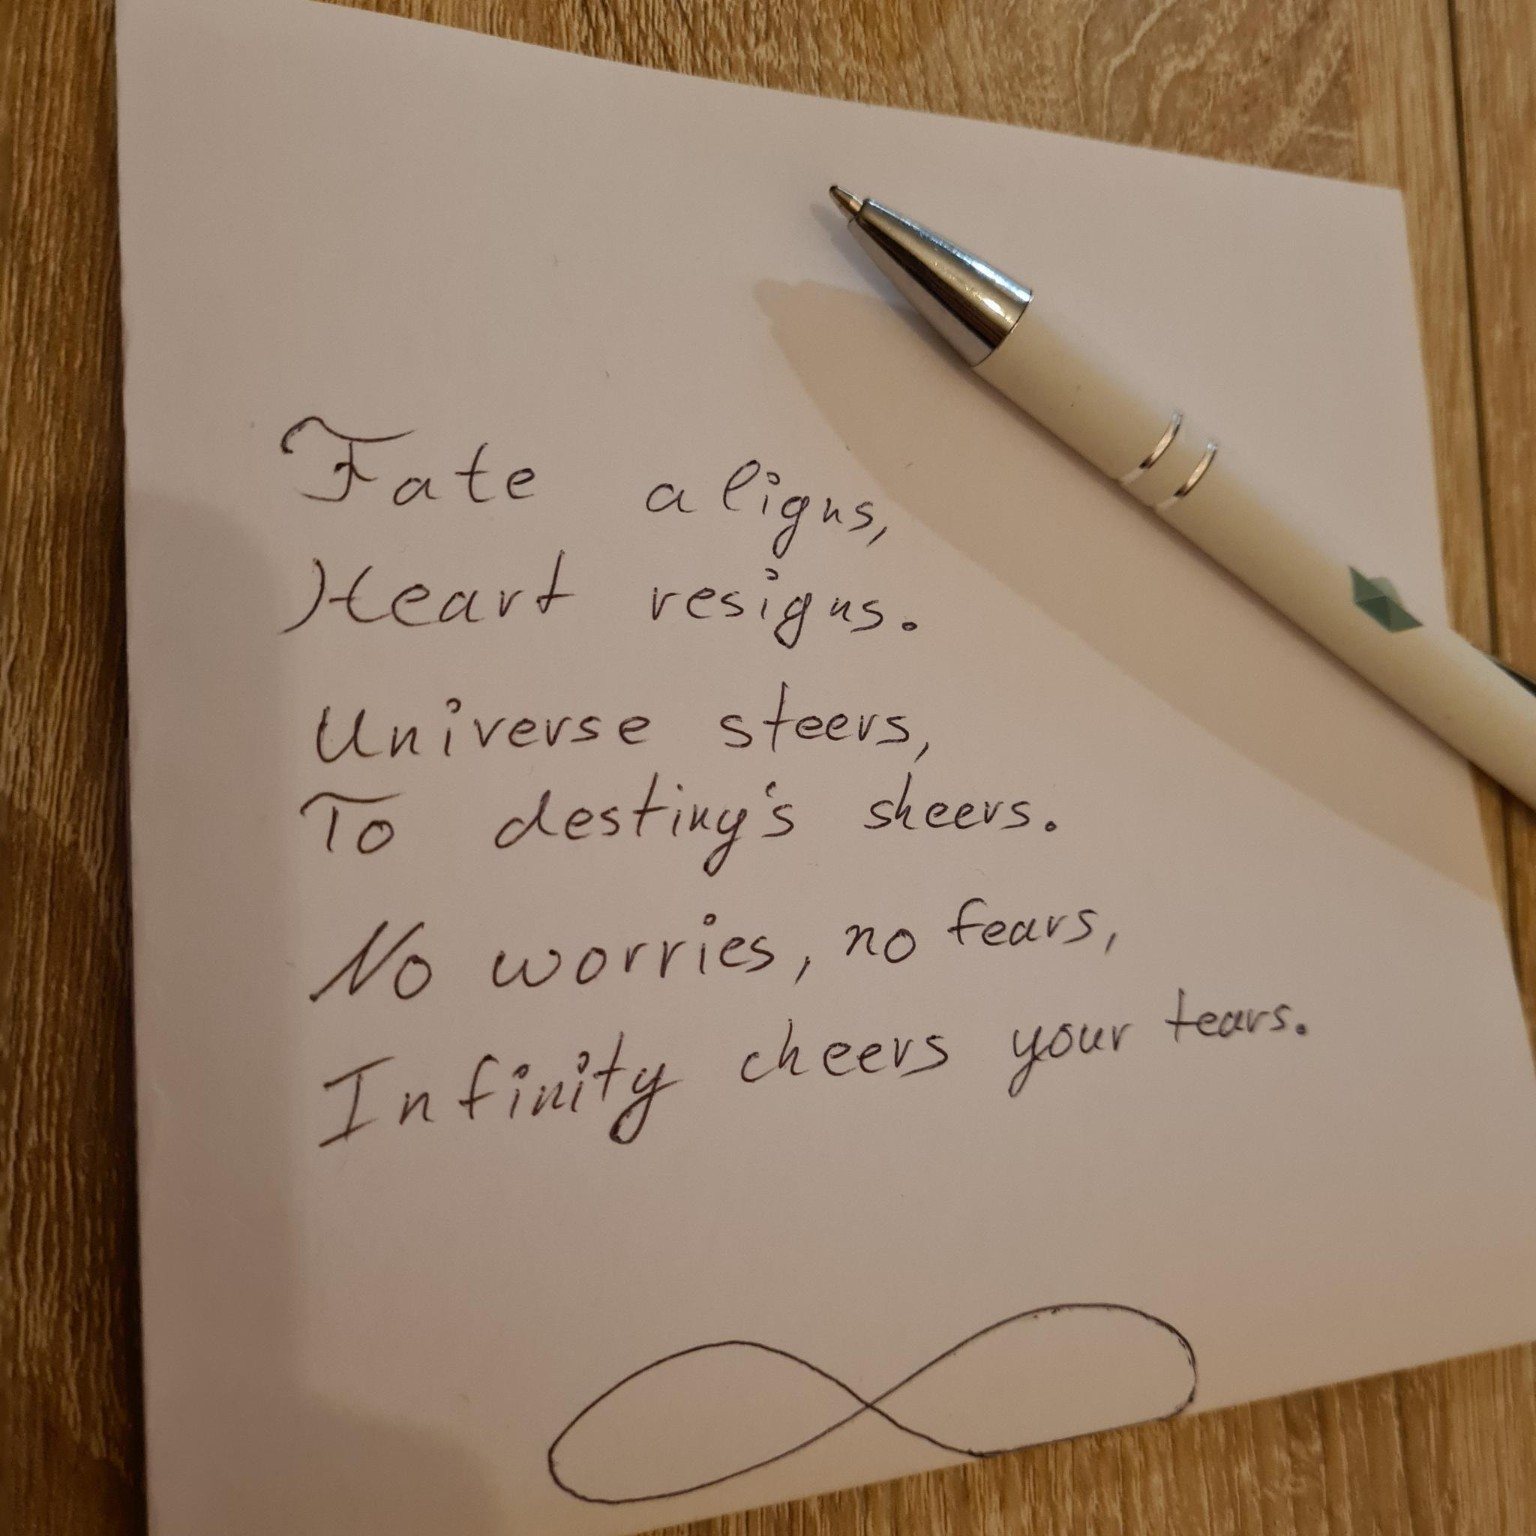 Fate aligns,
Heart resigns.
Universe steers,
To destiny's sheers.
No worries, no fears,
Infinity cheers your tears.